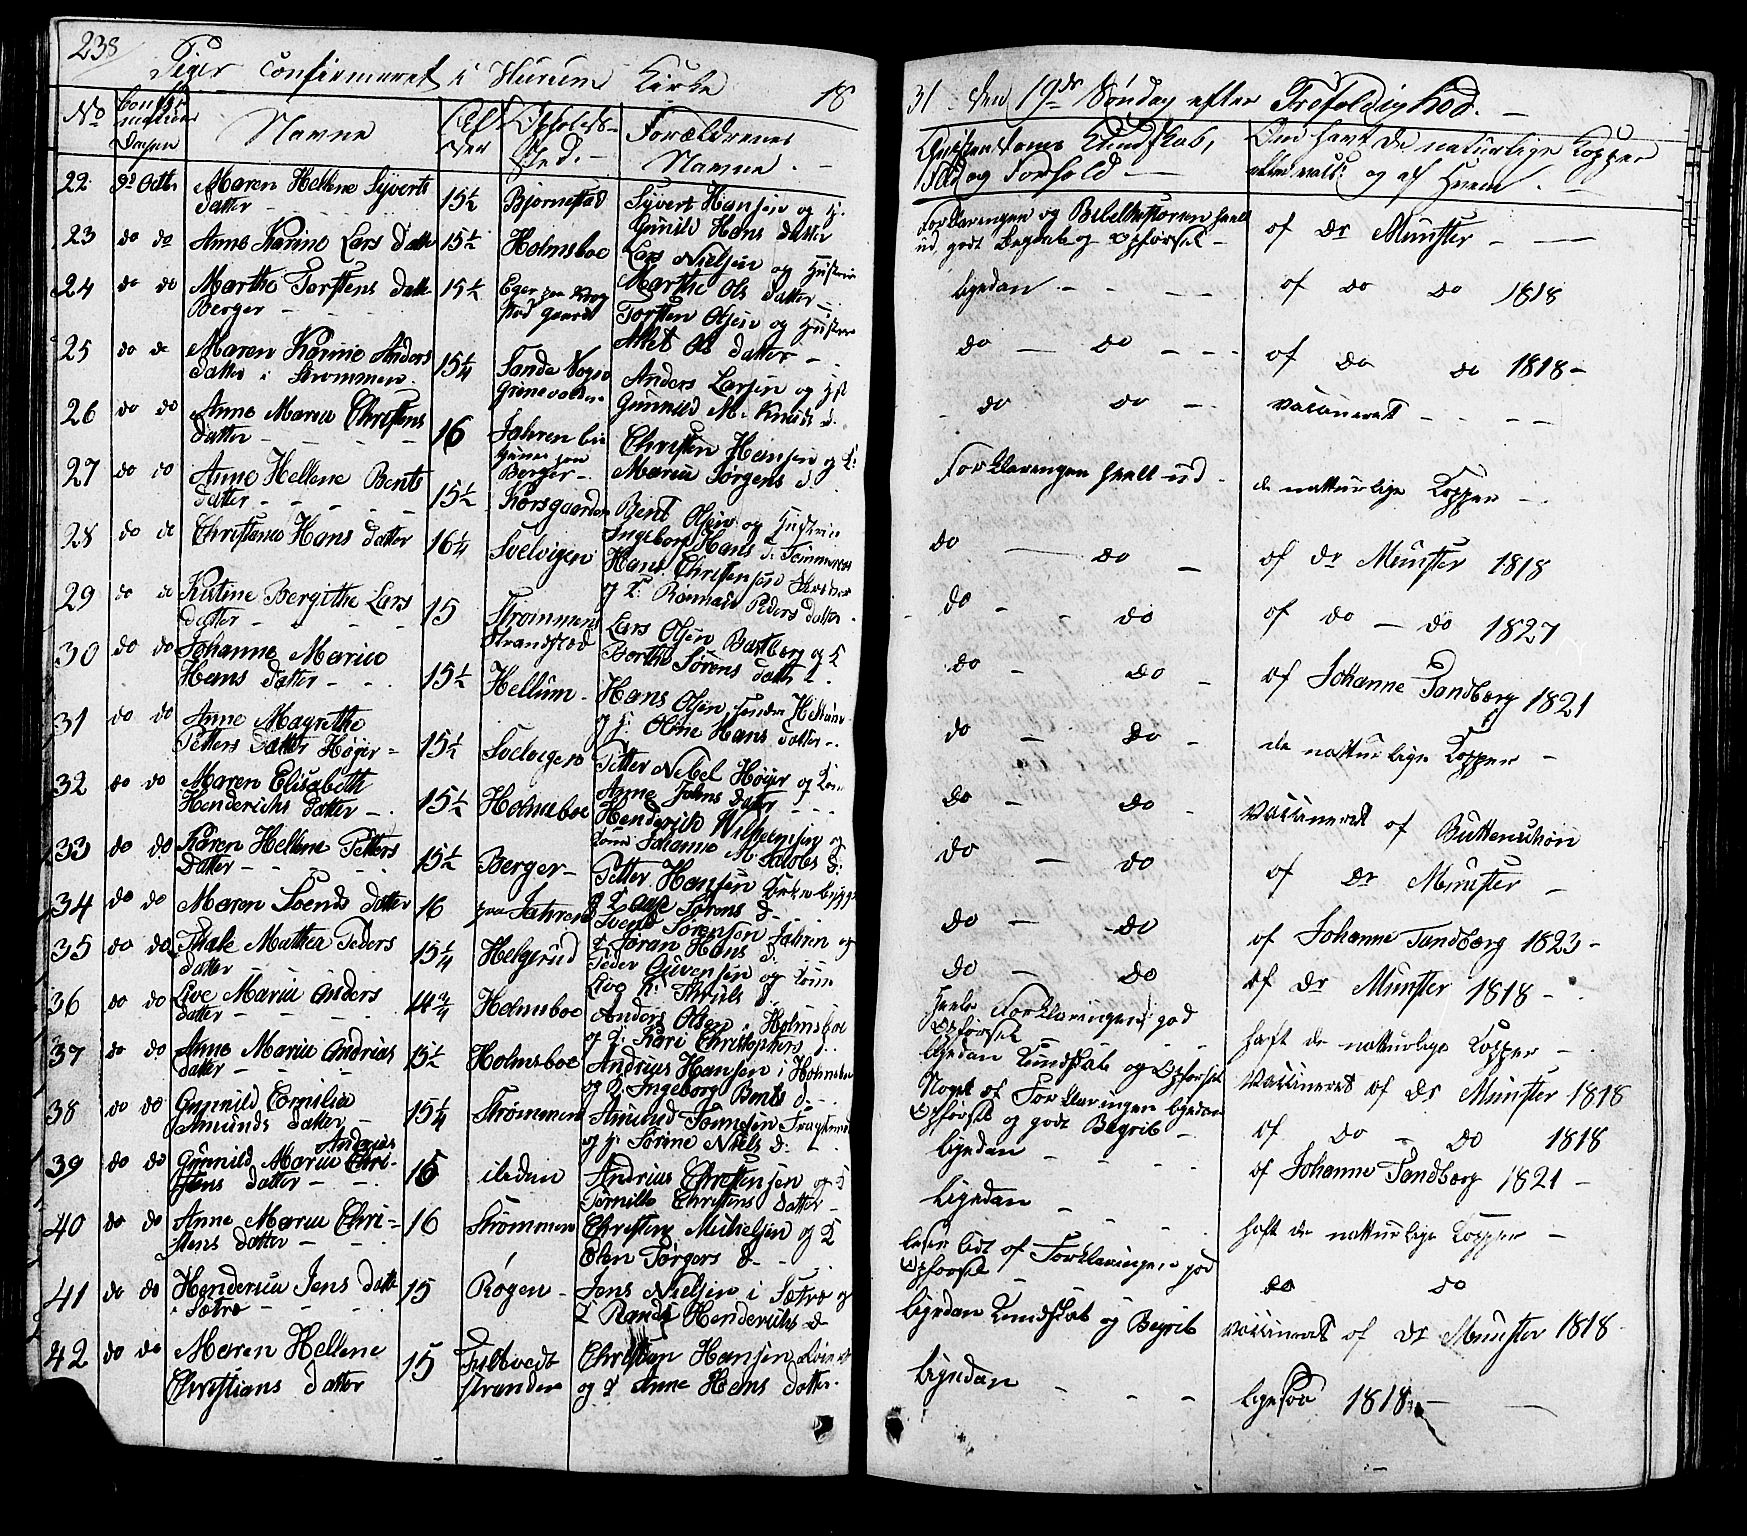 238
Piger confirmeret i Hurums Kirke 18
No Confirmations Dagen Navne Alder Opholds-Sted. Forældrenes Navne.
22 9de Octbr Maren Hellene Syverts datter 15½ Bjørnestad Syvert Hansen og H. Gunild Hans datter
23 do do Anne Karine Lars datter 15½ Holmsboe Lars Nielsen og Hustrue Marthe Ols datter
24 do do Marthe Torstens datt Berger 15½ Eger paa gaard Torsten Olsen og Hustrue Ols datter
25 do do Maren Karine Anders datter i Strømmen 15¼ Sande Sogn Anders Larsen og Gunnild M. Knuds d.
26 do do Anne Maria Christens datter 16 Jahren Berger Christen Hansen og K: Maria Jørgens d.
27 do do Anne Hellene Bents datter 15½ Korsgaarden Bent Olsen og Hustrue Ingeborg Hans d.
28 do do Christense Hans datter 16¼ Svelvigen Hans Christensen og K: Peders datter
29 do do Kistine Bergithe Lars datter 15 Strømmens Strandsted Lars Olsen Bastberg og K Berthe Sørens datter
30 do do Johanne Marie Hans datter 15½ Hellum Hans Olsen søndre Hellum og H: Oline Hans datter
31 do do Anne Magrethe Petters datter Høyer 15½ Svelvigen Petter Nebel Høyer og Kone Anne Johns datter
32 do do Maren Elisabeth Henderichs datter 15½ Holmsboe Henderich Wilhelmsen og Kone Johanne M. Jacobs d:
33 do do Karen Hellene Petters datter 15½ Berger Petter Hansen og K Sørens d
34 do do Maren Svends datter 16 paa Jahren Svend Sørensen Jahren og K Søran Hans d:
35 do do Thale Mathea Peders datter 15¼ Helgerud Peder Guvensen og Kone Live K: Thruls d
36 do do Live Maria Anders datter 14¾ Holmsboe Anders Olsen i Holmsboe og K: Kari Christophers d.
37 do do Anne Maria Andrias datter 15½ Holmsboe Andrias Hansen i Holmsboe og K. Ingeborg Bents d.
38 do do Gunnild Emilia Amunds datter 15¼ Strømmen Amund Tønnesen og H: Sørine Niels d:
39 do do Gunnild Maria Andrias Christens datter 15 ibidem Andrias Christensen og K Pernille Christens datter
40 do do Anne Maria Christens datter 16 Strømmen Christen Michelsen og K Elen Torgers d
41 do do Hendersia Jens datt i Sætre 15 Røgen Jens Nielsen i Sætre og K Randi Henderichs d
42 do do Maren Hellene Christians datter 15 Tuftvedt stranden Christian Hansen og K Anne Hans datter
31 den 19de Søndag efter Trefoldighed.
Christendoms Kundskab, Flid og Forhold Om havt de naturlige Kopper eller vacc: og af hvem.
Forklaringen og Bibelhistorien heelt ud, godt Begreb og Opførsel af Dr Munster
ligedan af do do 1818
do do af do do 1818
do do vacineret
Forklaringen heelt ud de naturlige Kopper
do do af Dr Munster 1818
do do af do do 1827
do do af Johanne Tandberg 1821
do do de naturlige Kopper
do do vacineret af Buttenschøn
do do af Dr Munster
do do af Johanne Tandberg 1823
do do af Dr Munster 1818
Heele Forklaringen, god Opførsel haft de naturlige Kopper
ligedan Kundskab og Opførsel vacineret af Dr Munster 1818
Noget af Forklaringen ligedan Opførsel og godt Begrib af do do 1818
ligedan af Johanne Tandberg 1821
ligedan haft de naturlige Kopper
lidt af Forklaringen god Opførsel do do
ligedan Kundskab og Begrib vacineret af Dr Munster 1818
ligedan ligesaa 1818